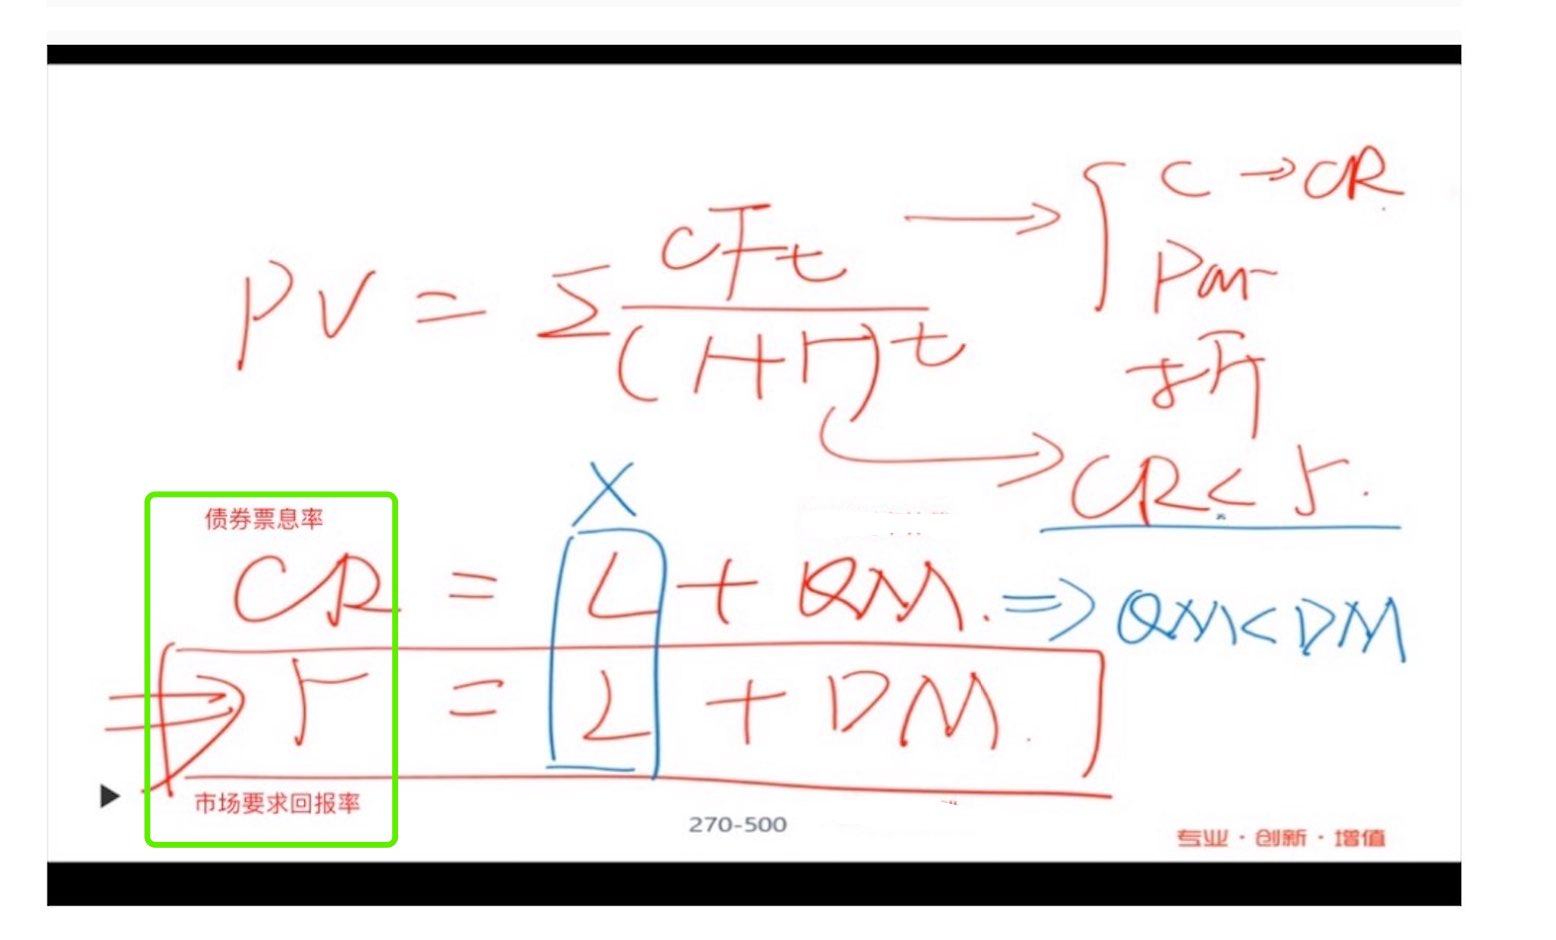 PV = Σ CFt / (1+r)^t → { C → CR
Par
折
CR < r.
X
债券票息率
CR = L + QM. ⇒ QM < DM
⇒ r = L + DM.
市场要求回报率
270-500
专业·创新·增值